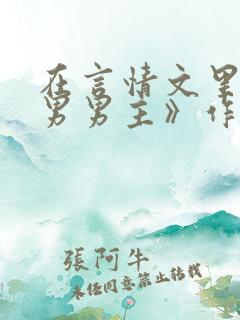 在言情文里
男男主》作
張阿牛
未经同意禁止转载